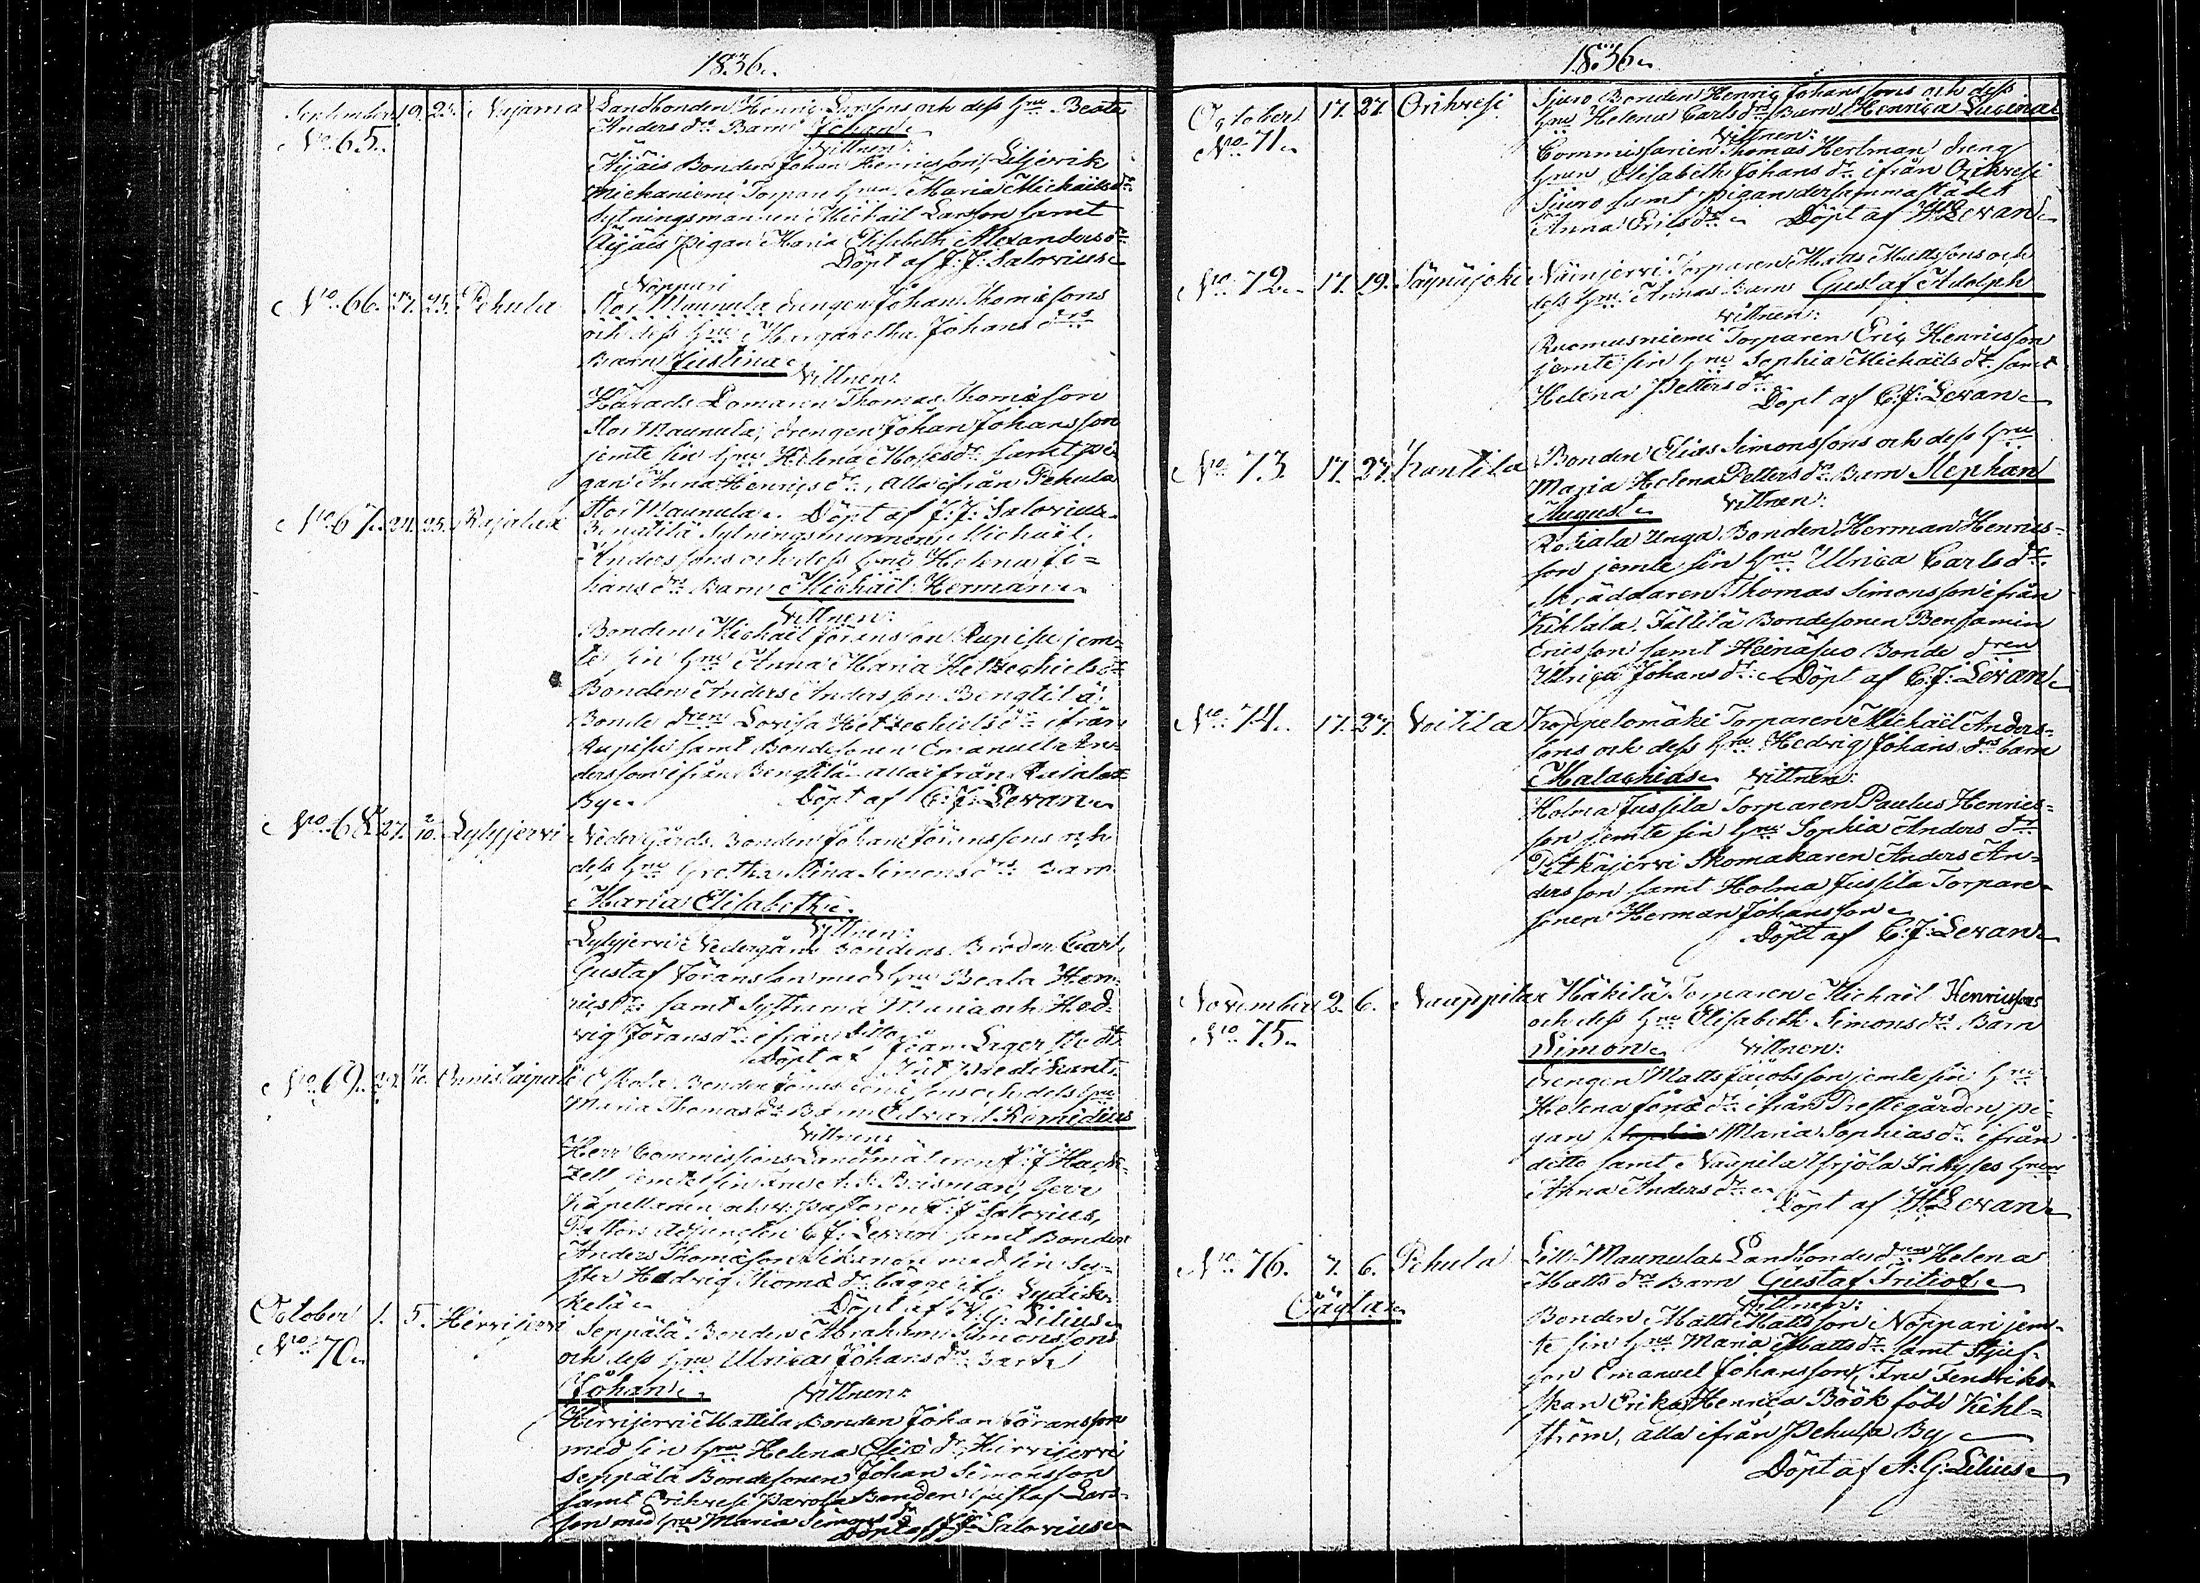 1836.
September 19. 25. Najama Landbonden Henric Larssons och dess Hru Beata
No 65. Anders dr Barn Johan
Vittnen:
Äijäis Bonden Johan Henricsson, Liljevik
Torpare Hrun Maria Michaëls dr
Sytningsmannen Michaël Larsson samt
Äijäis pigan Maria Elisabeth Alexanders dr
Döpt af J: J: Salovius
Noppari
No 66. 17. 25. Pehula Stor Maunula drengen Johan Thomæssons
och dess Hru Margaretha Johans drs
Barn Justina
Vittnen:
Härads Domaren Thomas Thomæson
Stor Maunula, drengen Johan Johansson
jemte sin Hru Helena Moses dr samt pi-
gan Anna Henrics dr, alla ifrån Pehula
Stor Maunula. Döpt af J: J: Salovius
No 67. 24. 25. Rajalax Bengtilä Sytningsmannen Michaël
Anderssons och dess Hru Helena Jo=
hans drs Barn Michaël Herman
Vittnen:
Bonden Michaël Göransson Rupisu jem-
te sin Hru Anna Maria Hetzechiels dr
Bonden Anders Andersson Bengtilä,
Bonde dren Lovisa Hetzechiels dr ifrån
Rupisu samt Bondesonen Emanuel An-
dersson ifrån Bengtilä alla ifrån
By. Döpt af C: J: Levan
No 68. 27. 2/10. Lylyjervi Nedergårds Bonden Johan Göranssons och
dess Hru Gretha Stina Simons drs Barn
Maria Elisabeth
Vittnen:
Lylyjervi Nedergårds Bondens Broder Carl
Gustaf Göransson med Hru Beata Hen-
rics dr samt Systrarna Maria och Hed-
vig Görans dr ifrån ditto
Döpt af
No 69. 29. Onnistaipale Eskola Bonden och dess Hru
Maria Thomas dr Barn Edvard Remidius
Vittnen:
Herr Commissions Landtmäteren J: J Hach-
zell jemte sin Fru A. S. Brisman, Herr
Kapellanen och v. pastoren J: J Salovius,
Pastors adjuncten C J: Levan samt Bonden
Anders Thomæson med sin sy-
ster Hedvig Thomæ dr
Döpt af A. G: Lilius
October 1. 5. Hirvijervi Seppälä Bonden Abraham Simonssons
No 70. och dess Hru Ulrica Johans drs Barn
Johan Vittnen:
Hirvijervi Mattila Bonden Johan Göransson
med sin Hru Helena Elias dr, Hirvijervi
Seppälä Bondesonen Johan Simonsson
samt Orihvesi Parola Bonden Gustaf Lars-
son med Hru Maria Simons dr
Döpt af J: J: Salovius
1836.
October 17. 27. Orihvesi Sjuro Bonden Henric Johanssons och dess
No 71. Hru Helena Carls drs Barn Henrica Lucina
Vittnen:
Commissarien Thomas Hertman dreng
Hrun Elisabeth Johans dr ifrån Orihvesi
Sjuro samt pigan dersammastädes
Anna Erics dr Döpt af Levan
No 72. 17. 19. Säynäjoki Näinjervi Torparen Matts Mattssons och
dess Hru Annas Barn Gustaf Adolph
Vittnen:
Ruomusniemi Torparen Eric Henricsson
jemte sin Hru Sophia Michaëls dr samt
Helena Petters dr
Döpt af C: J: Levan
No 73. 17. 27. Kantila Bonden Elias Simonssons och dess Hru
Maria Helena Petters drs Barn Stephan
August Vittnen:
Unga Bonden Herman Henrics=
son jemte sin Hru Ulrica Carls dr
Skräddaren Thomas Simonsson ifrån
Kihlala. Bondesonen Benjamin
Ericsson samt Heinäsuo Bonde dren
Ulrica Johans dr. Döpt af C: J: Levan
No 74. 17. 27. Voitila Koppelomäki Torparen Michaël Anders-
sons och dess Hru Hedvig Johans drs barn
Malachias Vittnen:
Holma Jussila Torparen Paulus Henrics-
son jemte sin Hru Sophia Anders dr
Pitkäjervi Skomakaren Anders An-
dersson samt Holma Jussila Torpare-
sonen Herman Johansson
Döpt af C: J: Levan
November 2. 6. Nauppila Häkilä Torparen Michaël Henricssons
No 75. och dess Hru Elisabeth Simons drs Barn
Simon Vittnen:
drengen Matts Jacobsson jemte sin Hru
Helena Jöns dr ifrån Prestegården, pi-
gan Maria Sophias dr ifrån
ditto samt Naupila Yrjölä Inhyses Hrun
Anna Anders dr
Döpt af Levan
No 76. 7. 6. Pehula Lill-Maunula Landbonde drens Helena
Matts drs Barn Gustaf Fritiof
Oägta Vittnen:
Bonden Matts Mattsson Noppari jem-
te sin Hru Maria Matts dr samt Stjuf-
son Emanuel Johansson, Fru Fendriks-
skan Erika Henrica Böök född Kihl=
ström, alla ifrån Pehula By
Döpt af A: G: Lilius